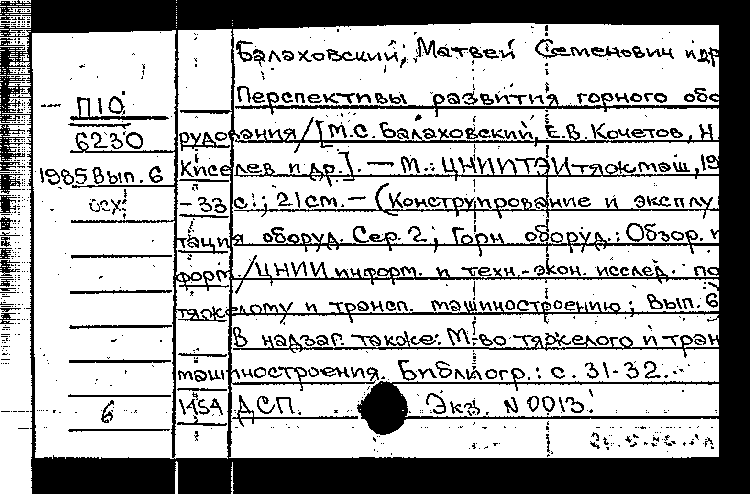 Балаховский, Матвей Семенович и др
П10
Перспективы развития горного обо
6230
рудования/[М.С. Балаховский, Е.В. Кочетов, Н.
1985 Вып. 6
Киселев и др.]. — М.: ЦНИИТЭИтяжмаш, 19
осх
- 33 с.; 21 см. — (Конструирование и эксплу
тация оборуд. Сер. 2, Горн. оборуд.: Обзор. и
форм/ЦНИИ информ. и техн.-экон. исслед. по
тяжелому и трансп. машиностроению; Вып. 6
В надзаг. также: М-во тяжелого и тран
машиностроения. Библиогр.: с. 31-32.
6
1454 ДСП. Экз. N 0013.